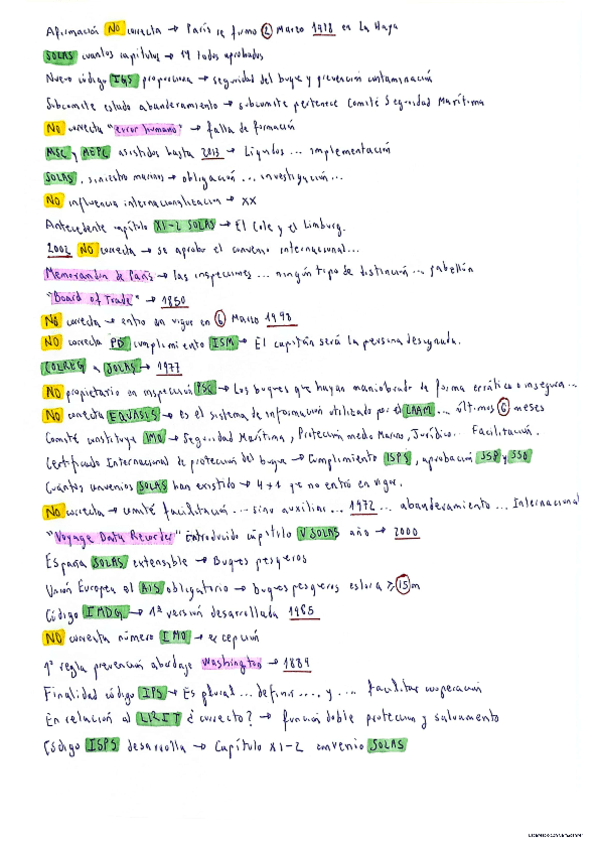 Afirmación NO correcta → París se formo 2 Marzo 1918 en La Haya
SOLAS cuantos capítulos → 14 todos aprobados
Nuevo código IGS proporciona → seguridad del buque y prevención contaminación
Subcomité estado abanderamiento → subcomite pertenece Comité Seguridad Marítima
NO correcta "error humano" → falla de formación
MSC y MEPC asistidos hasta 2013 → Líquidos ... implementación
SOLAS. siniestro marinos → obligación ... investigación ...
NO influencia internacionalizacion → XX
Antecedente capítulo XI-2 SOLAS → El Cole y el Limburg.
2002 NO correcta → se aprobar el convenio internacional...
Memorandun de París → las inspecciones ... ningún tipo de distinción ... pabellón
"Board of Trade" → 1850
No correcta → entro en vigor en 6 Marzo 1998
NO correcta PD cumplimiento ISM → El capitán será la persona designada.
COLREG a SOLAS → 1977
NO propietario en inspección PSC → Los buques que hayan maniobrado de forma errática o insegura ...
NO correcta EQUASIS → es el sistema de información utilizado por el ... últimos 6 meses
Comité constituye IMO → Seguridad Marítima, Protección medio Marino, Jurídico.. Facilitación.
Certificado Internacional de protección del buque → Cumplimiento ISPS, aprobación SSP y SSO
Cuántos convenios SOLAS han existido → 4 + 1 que no entró en vigor.
NO correcta → comité facilitación ... sino auxiliar ... 1972 ... abanderamiento ... Internacional
"Voyage Data Recorder" introducido cápitulo V SOLAS año → 2000
España SOLAS extensible → Buques pesqueros
Unión Europea el AIS obligatorio → buques pesqueros eslora ≥ 15 m
Código IMDG → 1ª versión desarrollada 1965
NO correcta número IMO → excepción
1º regla prevención abordaje Washington → 1889
Finalidad código IPS → Es plural ... definir .... y ... facilitar cooperación
En relación al LRIT ¿correcto? → función doble protección y salvamento
Código ISPS desarrolla → Capítulo XI-2 convenio SOLAS